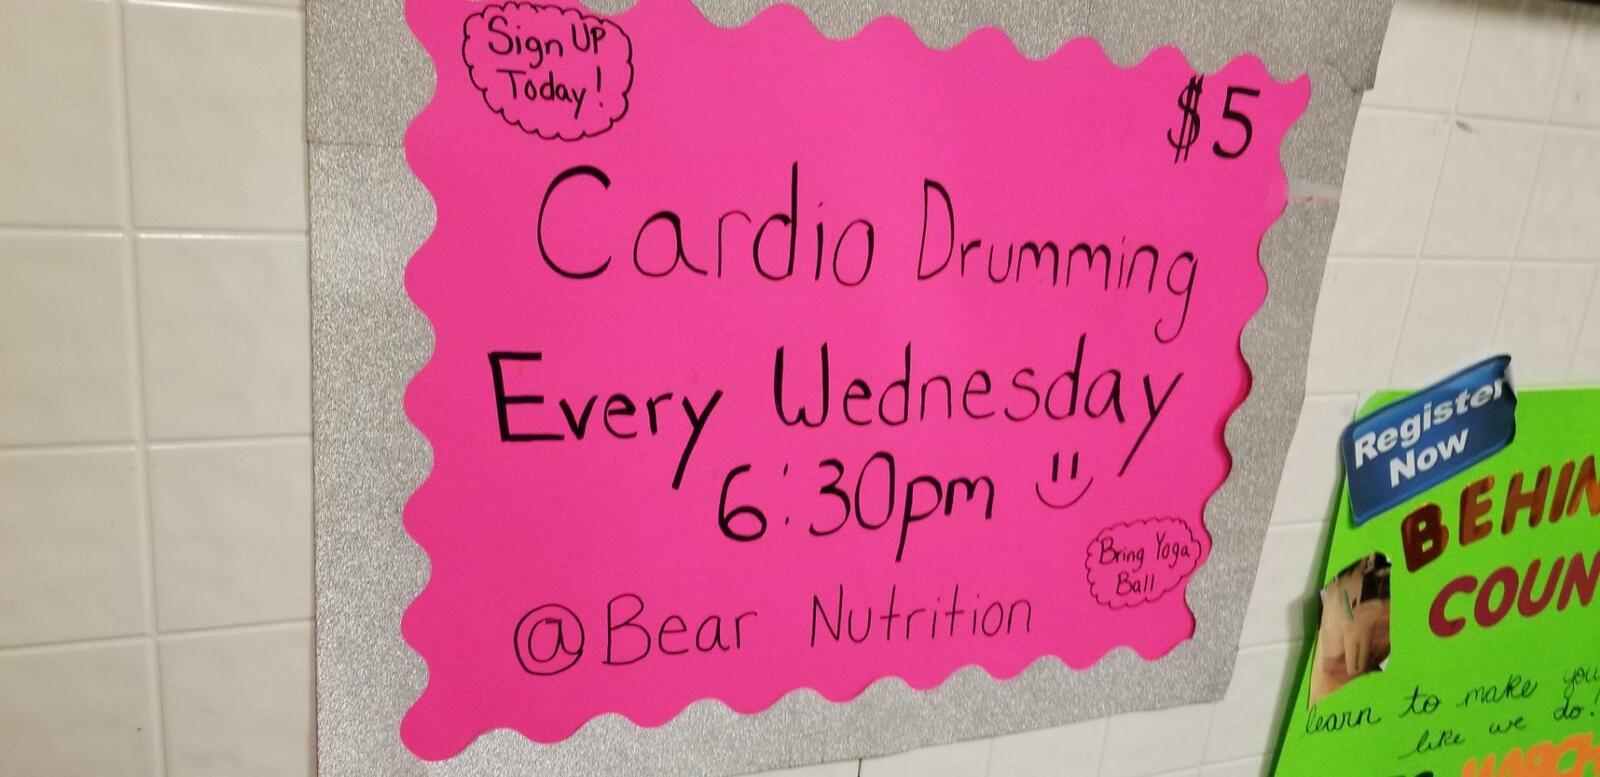 Sign UP
Today!
$5
Cardio Drumming
Every Wednesday
6:30pm
Bring Yoga
Ball
@Bear Nutrition
Register
Now
BEHIN
COUN
learn to make you
like we do!
MARCH